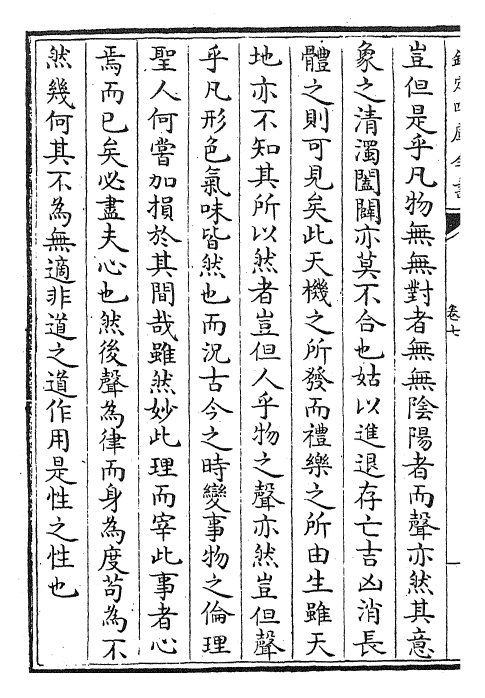 欽定四庫全書
卷七
豈但是乎凡物無無對者無無陰陽者而聲亦然其意
象之清濁闔闢亦莫不合也姑以進退存亡吉凶消長
體之則可見矣此天機之所發而禮樂之所由生雖天
地亦不知其所以然者豈但人乎物之聲亦然豈但聲
乎凡形色氣味皆然也而況古今之時變事物之倫理
聖人何嘗加損於其間哉雖然妙此理而宰此事者心
焉而已矣必盡夫心也然後聲為律而身為度苟為不
然幾何其不為無適非道之道作用是性之性也